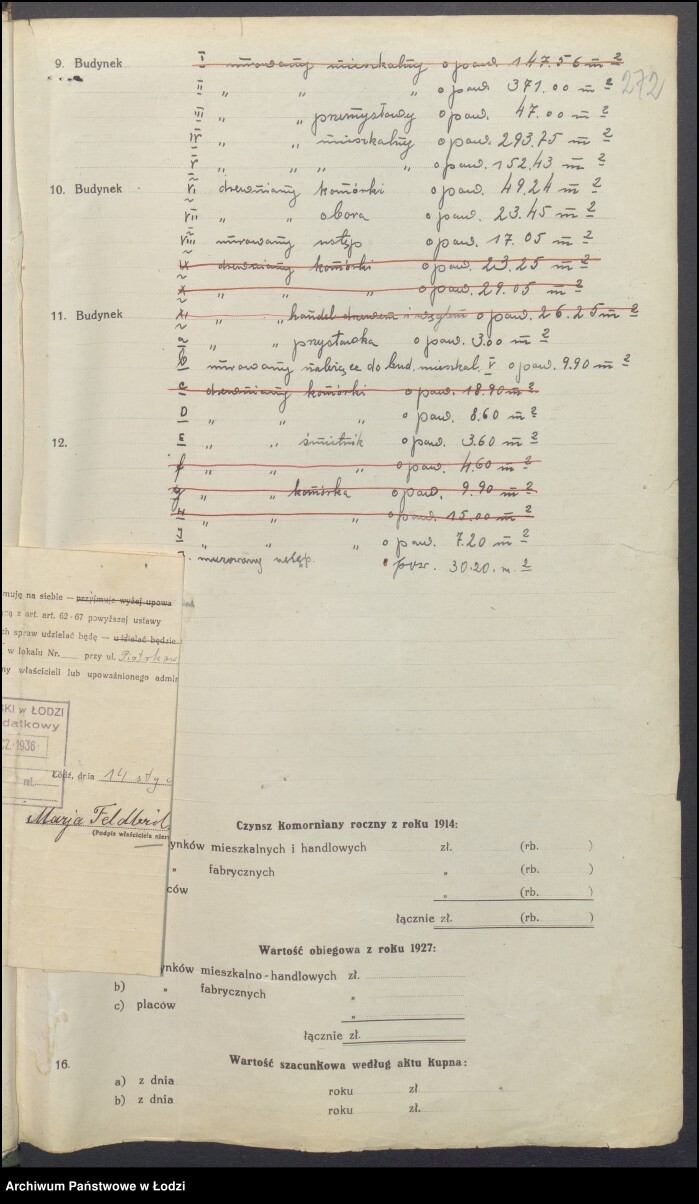 272
9. Budynek I murowany mieszkalny o pow. 147.56 m2
II " " " o pow. 371.00 m2
III " " przemysłowy o pow. 47.00 m2
IV " " mieszkalny o pow. 293.75 m2
V " " " " o pow. 152.43 m2
10. Budynek VI drewniany komórki o pow. 49.24 m2
VII " " obora o pow. 23.45 m2
VIII murowany ustęp o pow. 17.05 m2
IX drewniany komórki o pow. 23.25 m2
X " " " o pow. 29.05 m2
11. Budynek XI " " handel drzewem i węglem o pow. 26.25 m2
a " " przystawka o pow. 3.00 m2
b murowany należące do bud. mieszkal. V o pow. 9.90 m2
c drewniany komórki o pow. 18.90 m2
D " " " o pow. 8.60 m2
12. E " " śmietnik o pow. 3.60 m2
f " " " o pow. 4.60 m2
g " " komórka o pow. 9.90 m2
H " " " o pow. 15.00 m2
J " " " o pow. 7.20 m2
murowany ustęp. pow. 30.20. m.2
muję na siebie — przyjmuje wyżej upowa
z art. art. 62-67 powyższej ustawy
ch spraw udzielać będę — udzielać będzie
w lokalu Nr. przy ul. Piotrkow
ny właścicieli lub upoważnionego admi
SKI w ŁODZI
datkowy
CZ. 1936
Łódź, dnia 14 sty
Marja Feldbril
(Podpis właściciela nier
Czynsz komorniany roczny z roku 1914:
ynków mieszkalnych i handlowych zł. (rb. )
" fabrycznych " (rb. )
ców " (rb. )
łącznie zł. (rb. )
Wartość obiegowa z roku 1927:
ynków mieszkalno-handlowych zł.
b) " fabrycznych "
c) placów "
łącznie zł.
16. Wartość szacunkowa według aktu kupna:
a) z dnia roku zł
b) z dnia roku zł.
Archiwum Państwowe w Łodzi